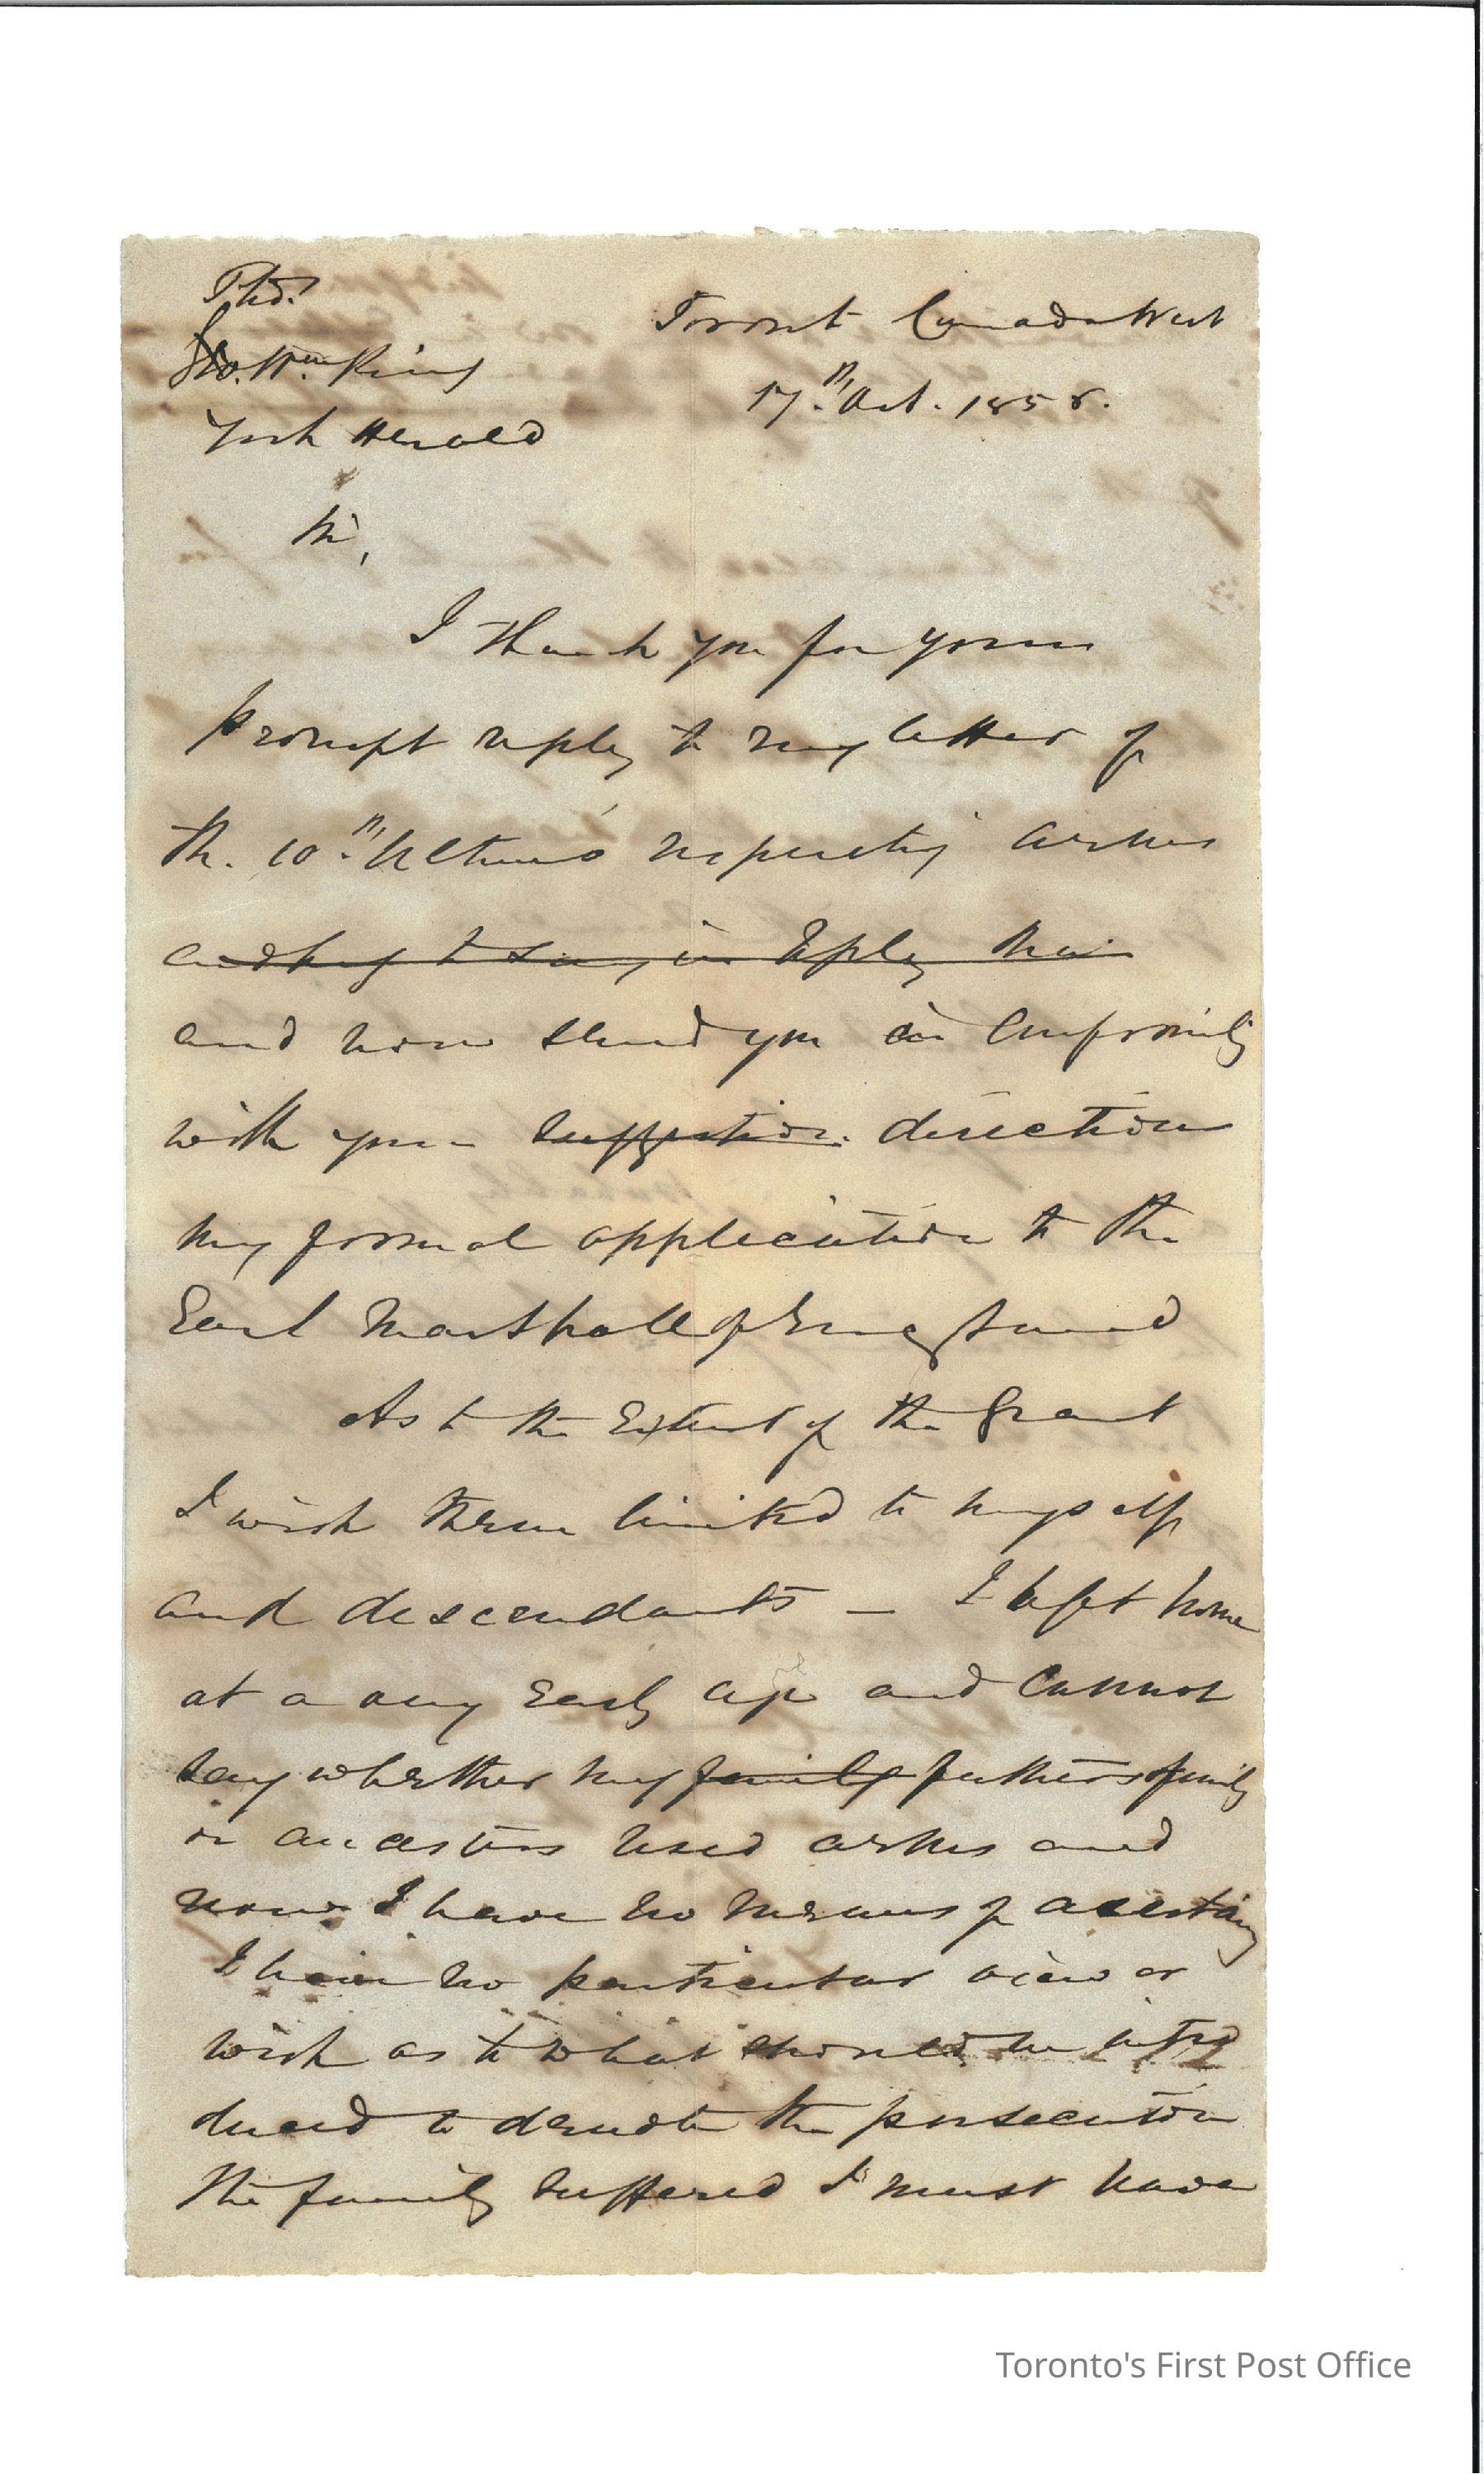 Toronto Canada West
17th Oct. 1858.
Wm. King
York Herald
Sir,
I thank you for your
prompt reply to my letter of
the 10th Ultimo respecting arms
and beg to say in reply
and now send you in conformity
with your suggestion direction
my formal application to the
Earl Marshall of England
As to the Extent of the Grant
I wish them limited to myself
and descendants — I left home
at a very Early age and cannot
say whether my family fathers family
or ancestors used arms and
now I have no means of
I have no particular view or
wish as to what should be intro
duced to denote the persecution
the family suffered I must have
Toronto's First Post Office